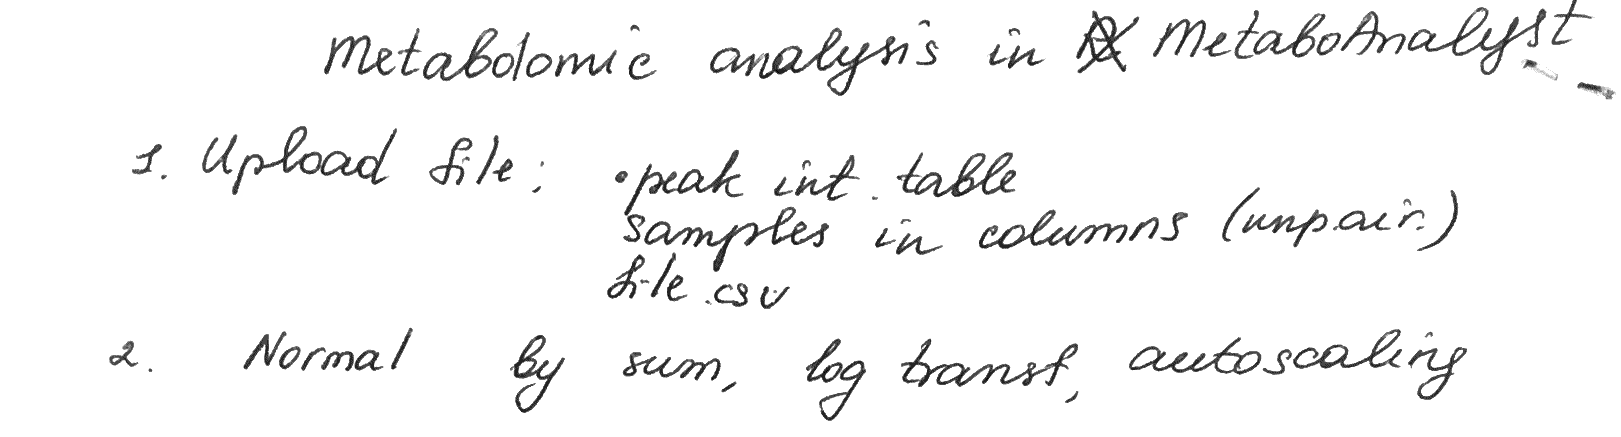 Metabolomic analysis in MetaboAnalyst
1. Upload file: • peak int. table
samples in columns (unpair.)
file.csv
2. Normal by sum, log transf, autoscaling